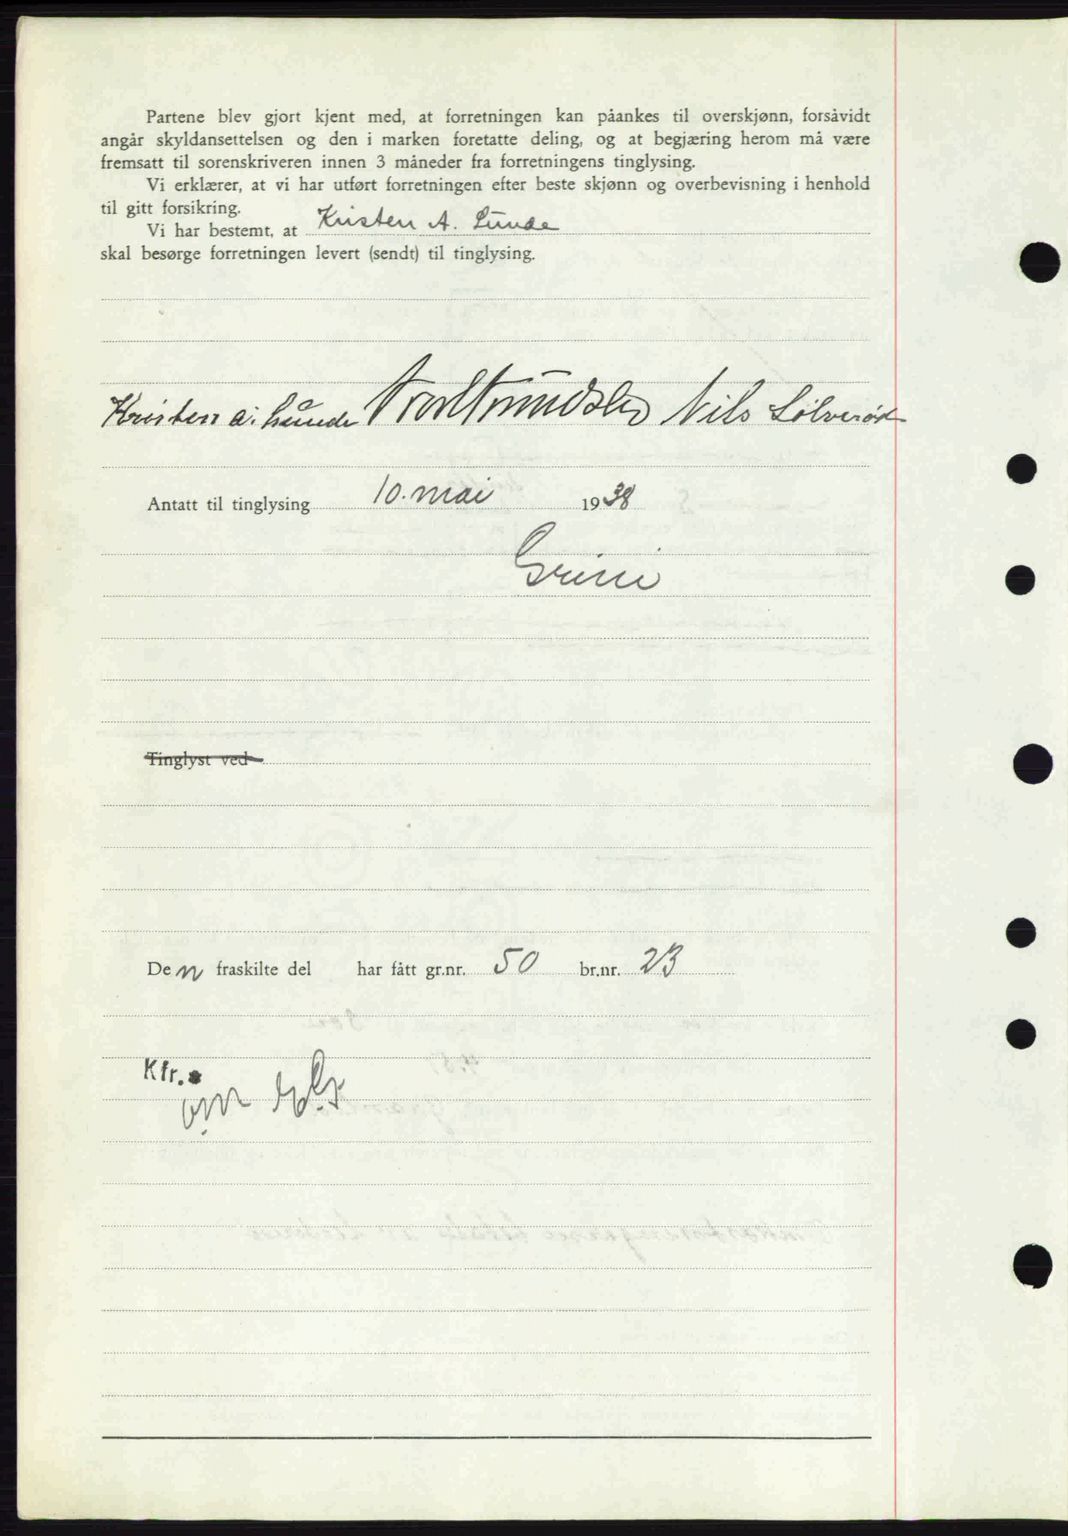 Partene blev gjort kjent med, at forretningen kan påankes til overskjønn, forsåvidt
angår skyldansettelsen og den i marken foretatte deling, og at begjæring herom må være
fremsatt til sorenskriveren innen 3 måneder fra forretningens tinglysing.
Vi erklærer, at vi har utført forretningen efter beste skjønn og overbevisning i henhold
til gitt forsikring.
Vi har bestemt, at Kristen A. Lunde
skal besørge forretningen levert (sendt) til tinglysing.
Kristen A. Lunde Nils Sölverød
Antatt til tinglysing 10. mai 1938
Grini
Tinglyst ved
Den fraskilte del har fått gr.nr. 50 br.nr. 23
Kfr.